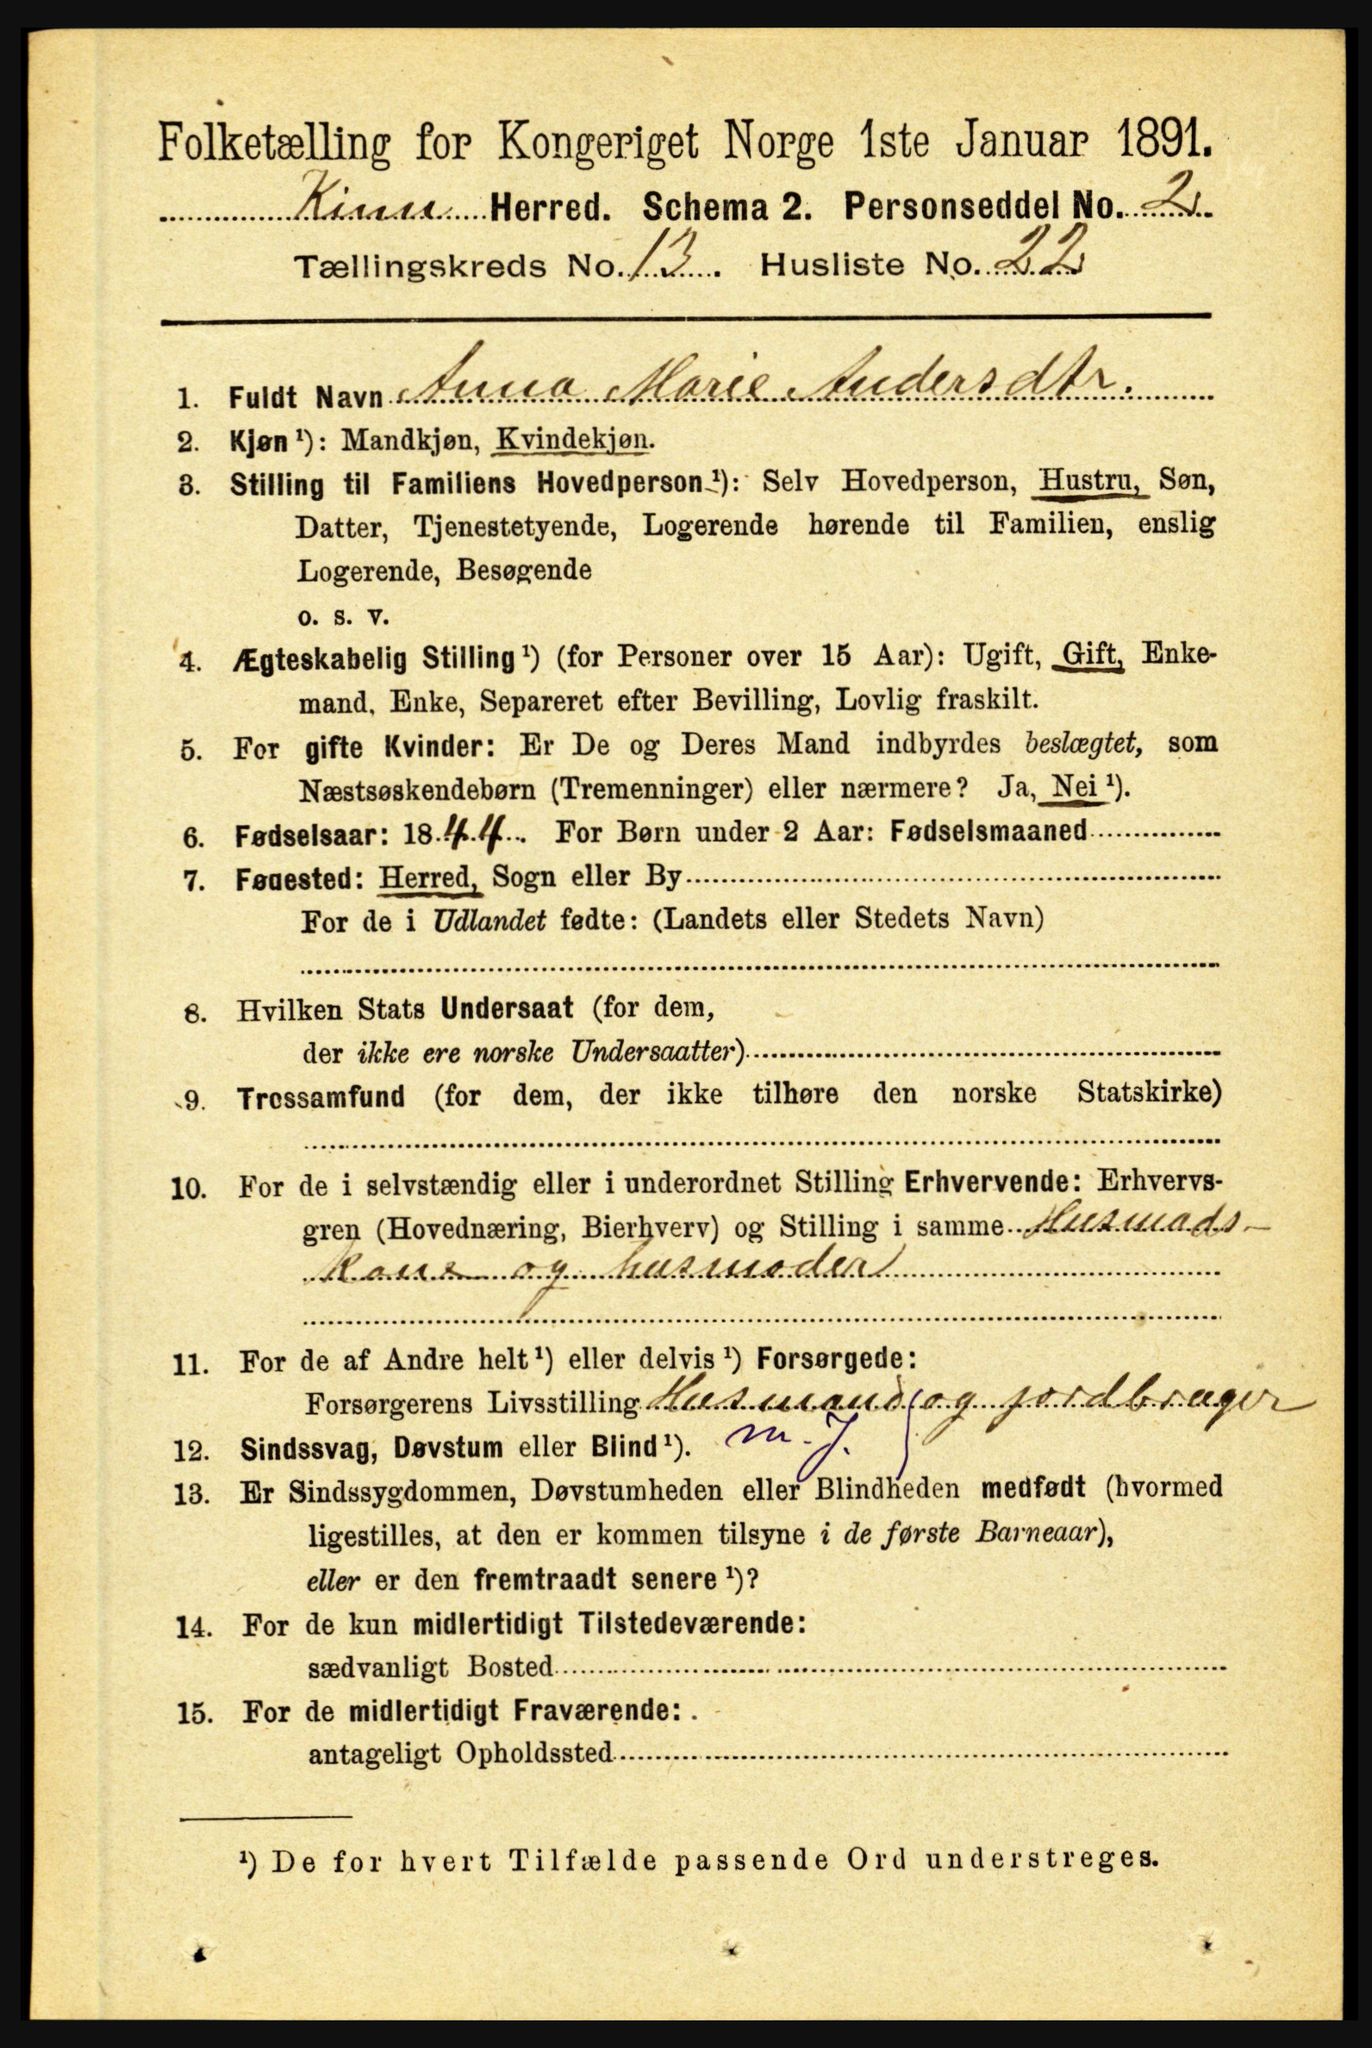 Folketælling for Kongeriget Norge 1ste Januar 1891.
Kinn Herred. Schema 2. Personseddel No. 2
Tællingskreds No. 13. Husliste No. 22
1. Fuldt Navn Anna Marie Andersdtr.
2. Kjøn ¹): Mandkjøn, Kvindekjøn.
3. Stilling til Familiens Hovedperson ¹): Selv Hovedperson, Hustru, Søn,
Datter, Tjenestetyende, Logerende hørende til Familien, enslig
Logerende, Besøgende
o. s. v.
4. Ægteskabelig Stilling ¹) (for Personer over 15 Aar): Ugift, Gift, Enke-
mand, Enke, Separeret efter Bevilling, Lovlig fraskilt.
5. For gifte Kvinder: Er De og Deres Mand indbyrdes beslægtet, som
Næstsøskendebørn (Tremenninger) eller nærmere? Ja, Nei ¹).
6. Fødselsaar: 1844. For Børn under 2 Aar: Fødselsmaaned
7. Fødested: Herred, Sogn eller By
For de i Udlandet fødte: (Landets eller Stedets Navn)
8. Hvilken Stats Undersaat (for dem,
der ikke ere norske Undersaatter)
9. Trossamfund (for dem, der ikke tilhøre den norske Statskirke)
10. For de i selvstændig eller i underordnet Stilling Erhvervende: Erhvervs-
gren (Hovednæring, Bierhverv) og Stilling i samme Husmads-
kone og husmoder
11. For de af Andre helt ¹) eller delvis ¹) Forsørgede:
Forsørgerens Livsstilling Husmand og jordbruger
m. J.
12. Sindssvag, Døvstum eller Blind ¹).
13. Er Sindssygdommen, Døvstumheden eller Blindheden medfødt (hvormed
ligestilles, at den er kommen tilsyne i de første Barneaar),
eller er den fremtraadt senere ¹)?
14. For de kun midlertidigt Tilstedeværende:
sædvanligt Bosted
15. For de midlertidigt Fraværende:
antageligt Opholdssted
¹) De for hvert Tilfælde passende Ord understreges.